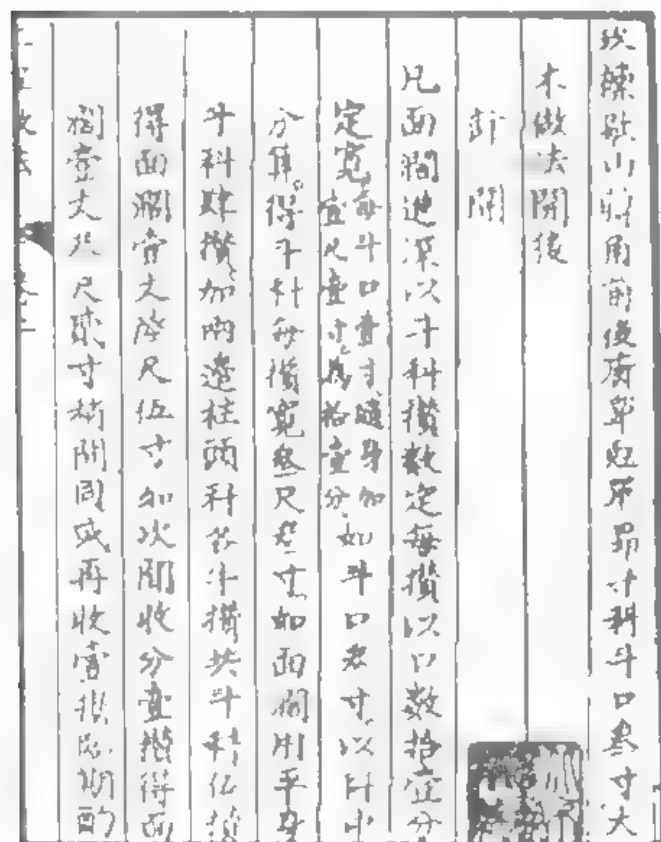 玖檁歇山轉角前後廊單翹單昂斗科斗口叁寸大
木做法開後
計開
凡面闊進深以斗科攢數定每攢以口數拾壹分
定寬每斗口壹寸隨身加壹尺壹寸為拾壹分如斗口叁寸以科中
分算得斗科每攢寬叁尺叁寸如面闊用平身
斗科肆攢加兩邊柱頭科各半攢共斗科伍攢
得面闊壹丈陸尺伍寸如次間收分壹攢得面
闊壹丈叁尺貳寸梢間同或再收壹攢臨期酌